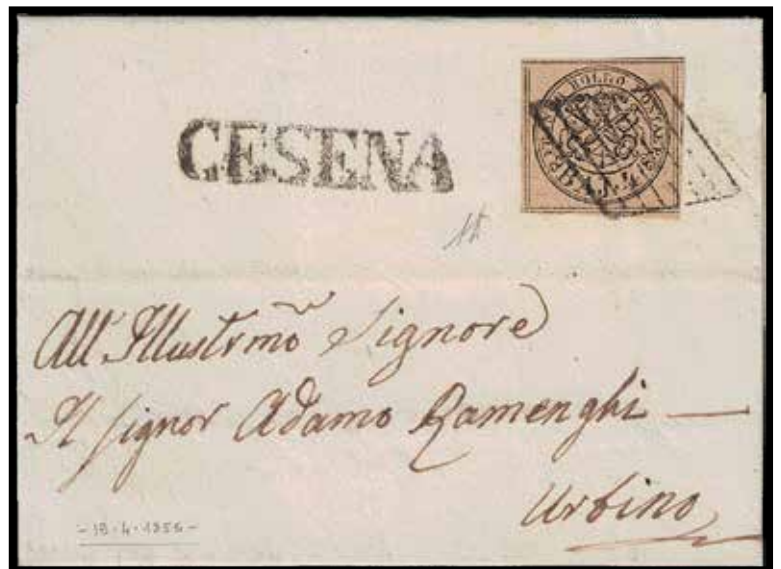 CESENA
FRANCO BOLLO POSTALE
BAJ
All' Illustrmo Signore
Il Signor Adamo Ramenghi —
Urbino